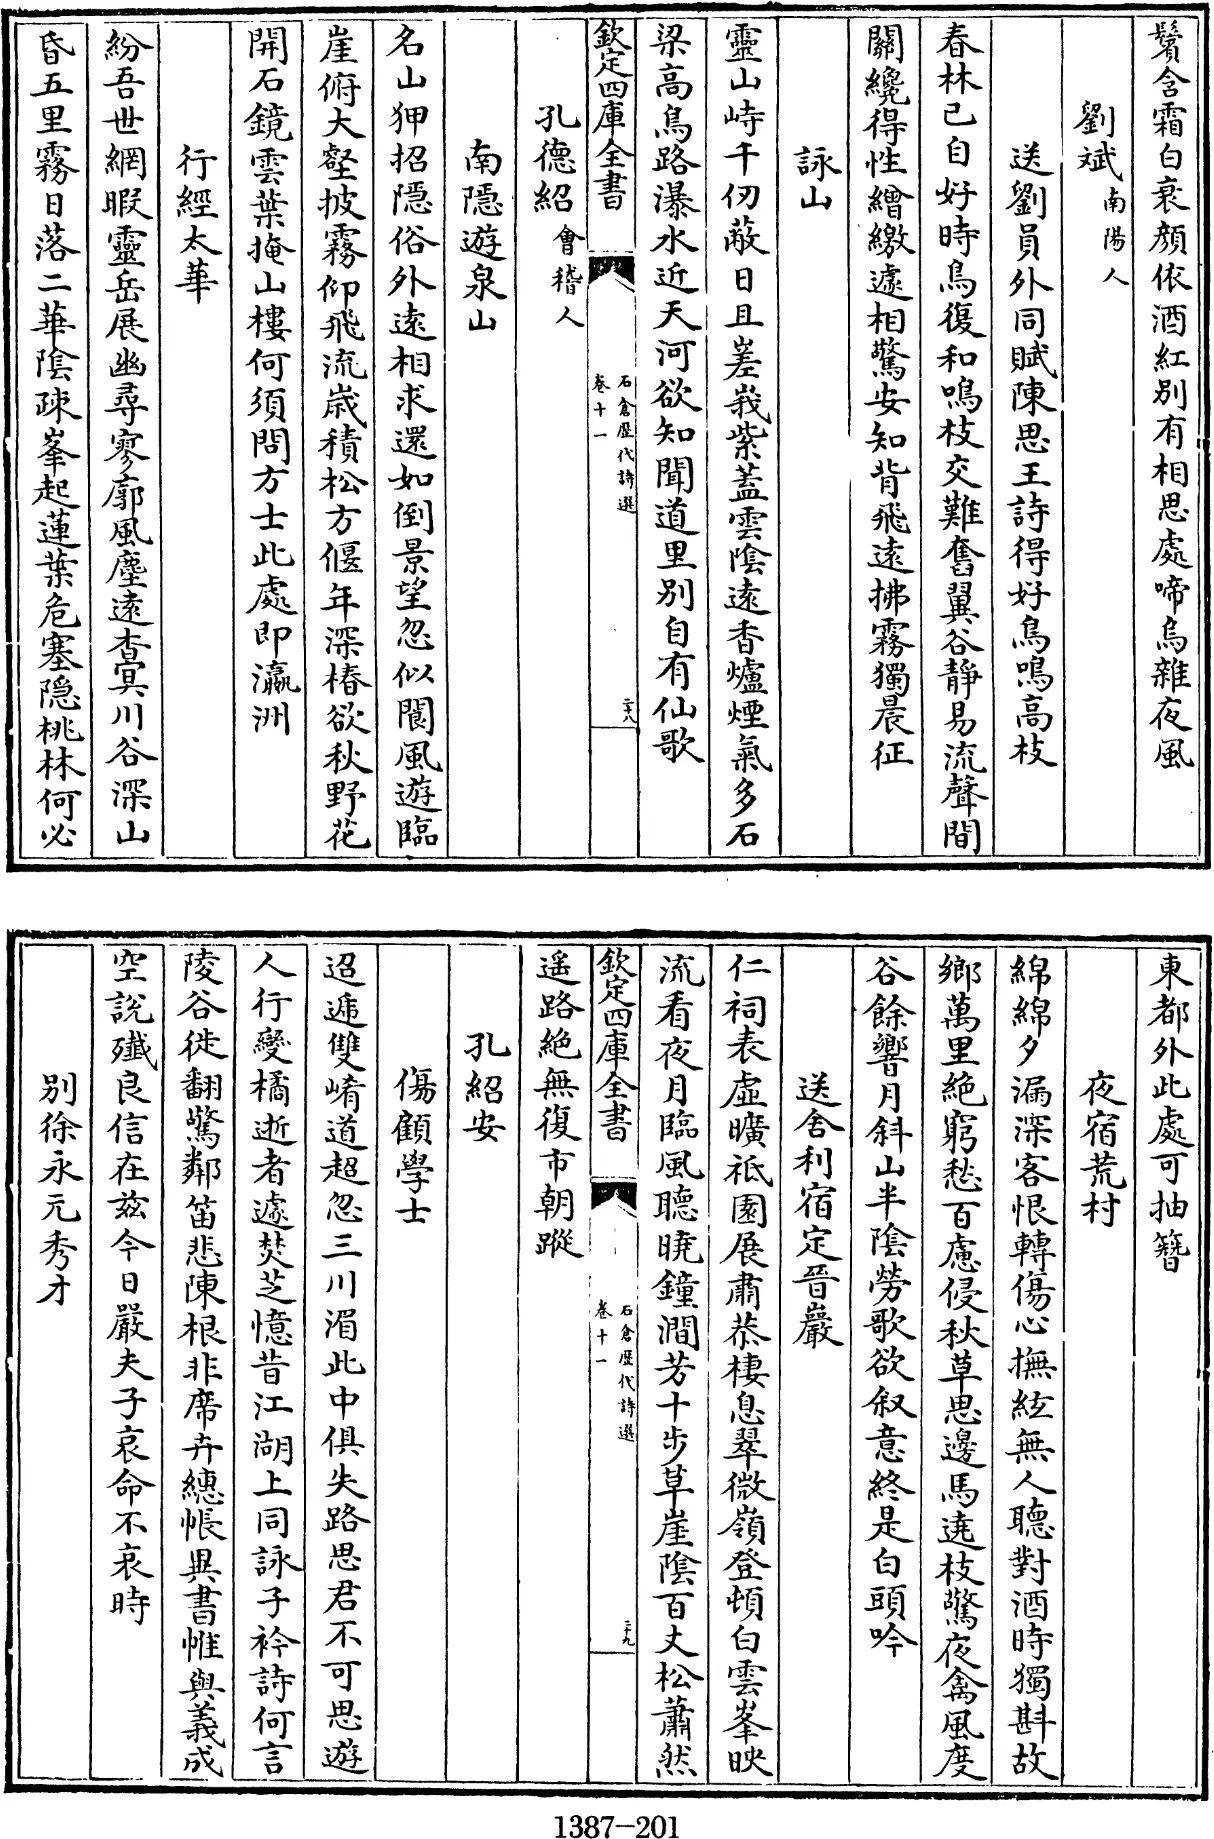 鬢含霜白衰顔依酒紅別有相思處啼烏雜夜風
劉斌南陽人
送劉員外同賦陳思王詩得好鳥鳴高枝
春林已自好時鳥復和鳴枝交難奮翼谷靜易流聲間
關纔得性繒繳遽相驚安知背飛遠拂霧獨晨征
詠山
靈山峙千仞蔽日且嵳峩紫蓋雲陰遠香爐煙氣多石
梁高鳥路瀑水近天河欲知聞道里別自有仙歌
欽定四庫全書
石倉歷代詩選
卷十一
二十八
孔德紹會稽人
南隱遊泉山
名山狎招隱俗外遠相求還如倒景望忽似閬風遊臨
崖俯大壑披霧仰飛流歲積松方偃年深椿欲秋野花
開石鏡雲葉掩山樓何須問方士此處即瀛洲
行經太華
紛吾世網暇靈岳展幽尋寥廓風塵遠杳冥川谷深山
昏五里霧日落二華陰疎峯起蓮葉危塞隱桃林何必
東都外此處可抽簪
夜宿荒村
綿綿夕漏深客恨轉傷心撫絃無人聽對酒時獨斟故
鄉萬里絶窮愁百慮侵秋草思邊馬遶枝驚夜禽風度
谷餘響月斜山半陰勞歌欲叙意終是白頭吟
送舍利宿定晉巖
仁祠表虛曠祇園展肅恭棲息翠微嶺登頓白雲峯映
流看夜月臨風聽曉鐘澗芳十步草崖陰百丈松蕭然
欽定四庫全書
石倉歷代詩選
卷十一
二十九
遥路絶無復市朝蹤
孔紹安
傷顧學士
迢遞雙崤道超忽三川湄此中俱失路思君不可思遊
人行變橘逝者遽焚芝憶昔江湖上同詠子衿詩何言
陵谷徙翻驚鄰笛悲陳根非席卉繐帳異書帷與義成
空說殲良信在兹今日嚴夫子哀命不哀時
別徐永元秀才
1387-201